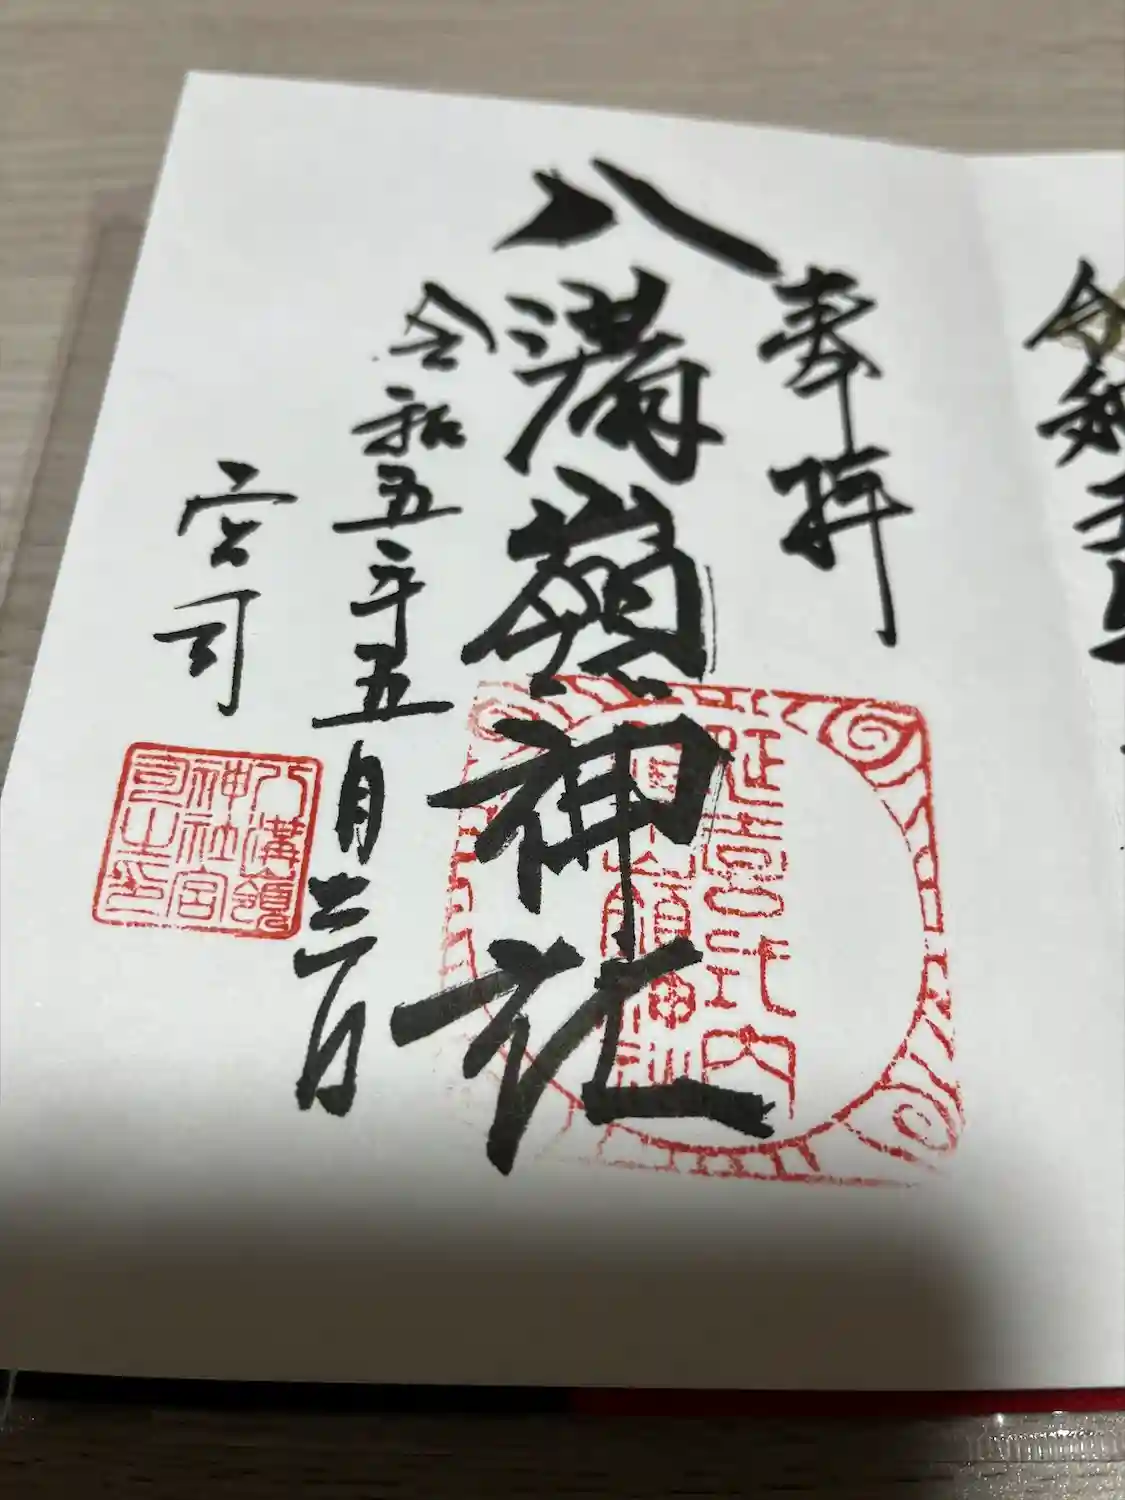 奉拝
八溝嶺神社
延喜式内
八溝嶺神社
令和五年五月
宮司
八溝嶺
神社宮
司之印
令和